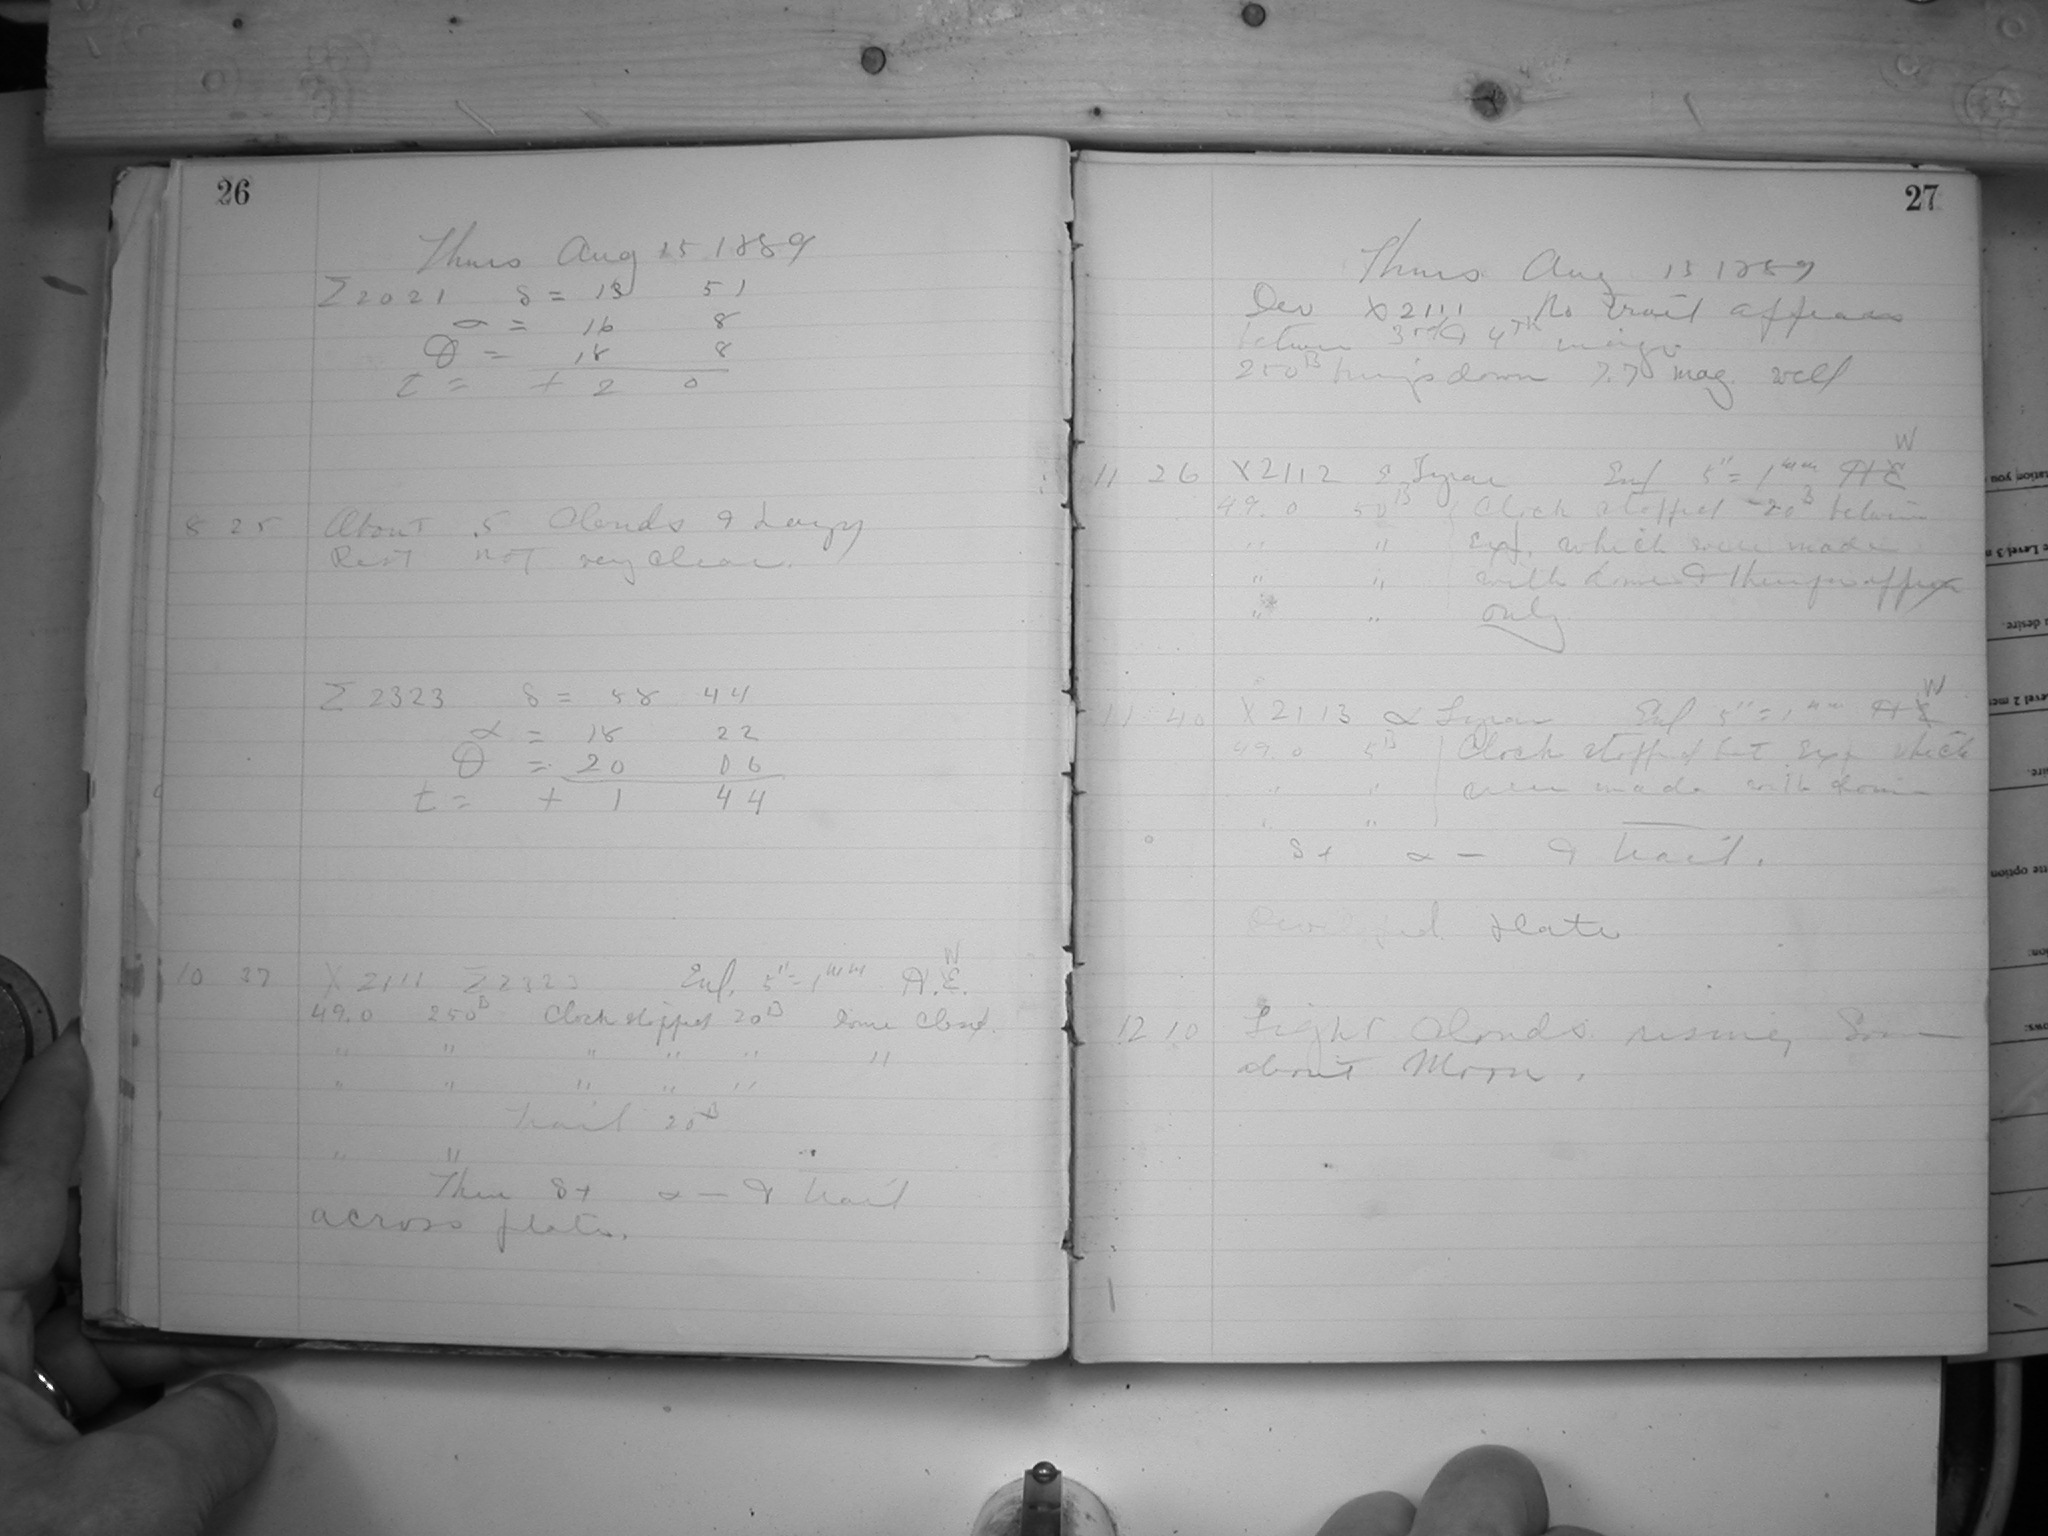 26
Thurs Aug 15 1889
Σ 2021 δ = 13 51
α = 16 8
θ = 18 8
t = + 2 0
8 25 About .5 Clouds & hazy
Rest not very clear.
Σ 2323 δ = 58 44
α = 18 22
θ = 20 06
t = + 1 44
10 37 X 2111 Σ 2323 Enl. 5" = 1mm H.E. W
49.0 250B Clock stopped 20B Dome closed.
" " " " " "
" " " " "
Trail 20B
" "
Then δ+ α – & trail
across plate.
27
Thurs Aug 15 1889
Dev X 2111 No trail appears
between 3rd & 4th images
250B brings down 7.70 mag. well
11 26 X 2112 ε Lyrae Enl 5" = 1mm H E W
49.0 50B Clock stopped 20B between
" " Exp. which were made
" " with dome &
" " only
11 40 X 2113 α Lyrae Enl 5" = 1mm H E W
49.0 5B Clock stopped bet Exp which
" " were made with dome
" "
δ+ α – & trail.
Developed plate
12 10 Light Clouds rising, Some
about Moon.